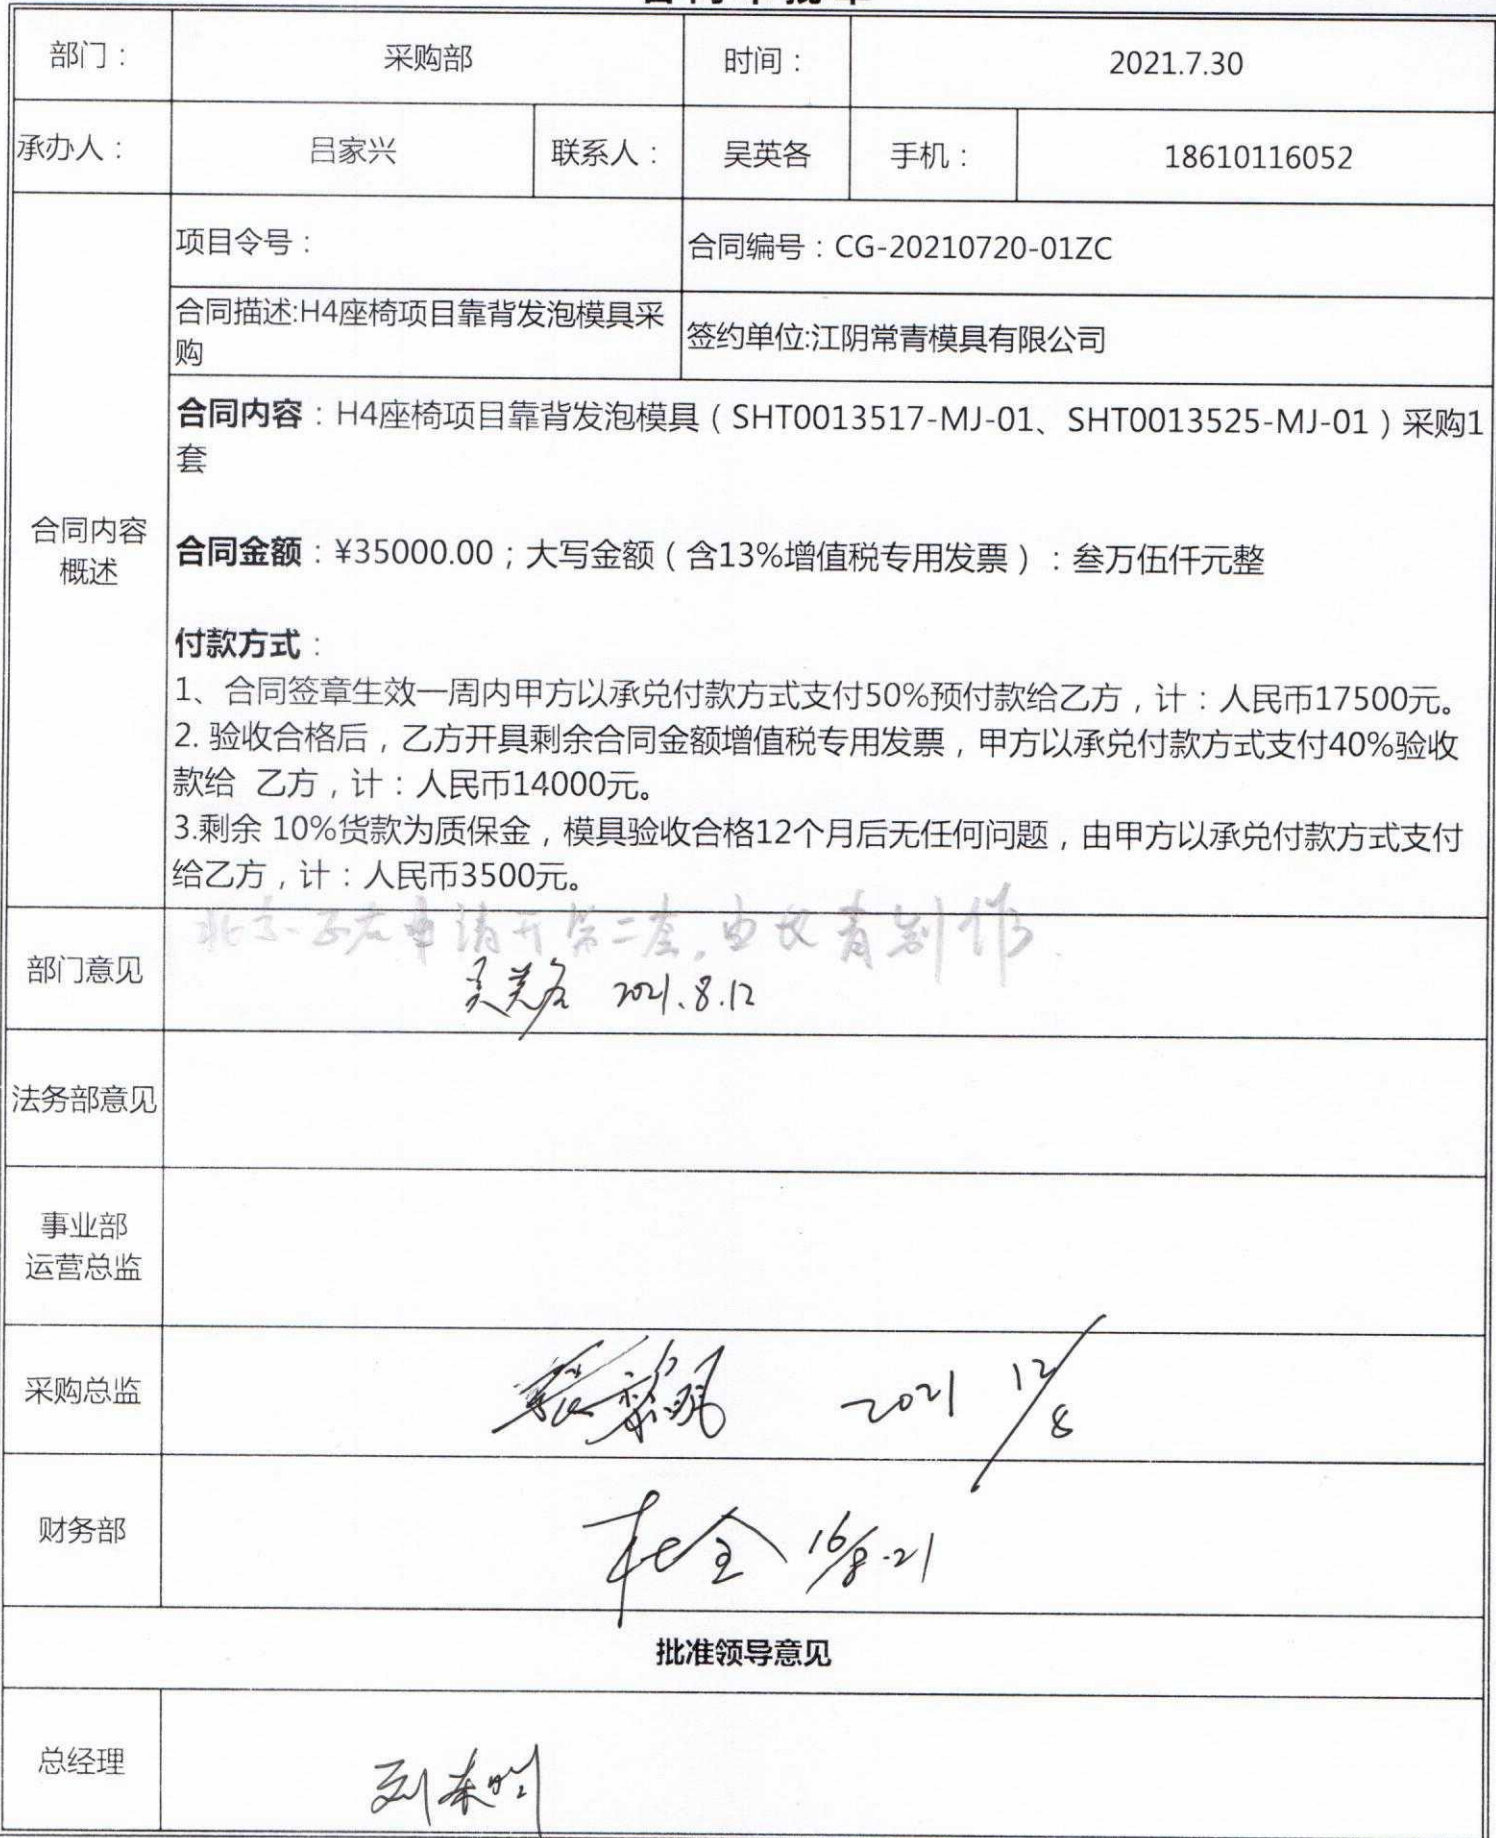 部门： 采购部 时间： 2021.7.30
承办人： 吕家兴 联系人： 吴英各 手机： 18610116052
项目令号： 合同编号：CG-20210720-01ZC
合同描述:H4座椅项目靠背发泡模具采
购
签约单位:江阴常青模具有限公司
合同内容
概述
合同内容：H4座椅项目靠背发泡模具（SHT0013517-MJ-01、SHT0013525-MJ-01）采购1
套
合同金额：¥35000.00；大写金额（含13%增值税专用发票）：叁万伍仟元整
付款方式：
1、合同签章生效一周内甲方以承兑付款方式支付50%预付款给乙方，计：人民币17500元。
2. 验收合格后，乙方开具剩余合同金额增值税专用发票，甲方以承兑付款方式支付40%验收
款给 乙方，计：人民币14000元。
3.剩余 10%货款为质保金，模具验收合格12个月后无任何问题，由甲方以承兑付款方式支付
给乙方，计：人民币3500元。
部门意见
申请开第二套,由 青制作
吴英各 2021.8.12
法务部意见
事业部
运营总监
采购总监 2021 12/8
财务部 16/8-21
批准领导意见
总经理